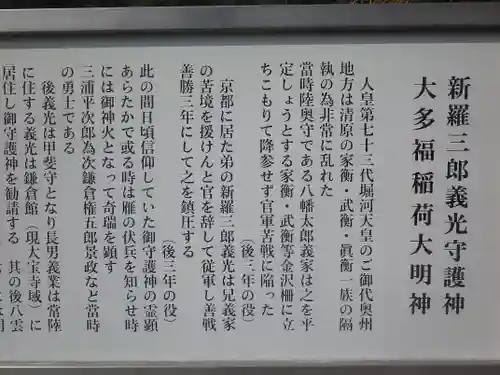 新羅三郎義光守護神
大多福稲荷大明神
人皇第七十三代堀河天皇のご御代奥州
地方は清原の家衡・武衡・眞衡一族の隔
執の為非常に乱れた
当時陸奥守である八幡太郎義家は之を平
定しょうとする家衡・武衡等金沢柵に立
ちこもりて降参せず官軍苦戦に陥った
(後三年の役)
京都に居た弟の新羅三郎義光は兄義家
の苦境を援けんと官を辞して従軍し善戦
善勝三年にして之を鎮圧する
(後三年の役)
此の間日頃信仰していた御守護神の霊顕
あらたかで或る時は雁の伏兵を知らせ時
には御神火となって奇瑞を顕す
三浦平次郎為次鎌倉権五郎景政など當時
の勇士である
後義光は甲斐守となり長男義業は常陸
に住する義光は鎌倉館(現大宝寺域)に
居住し御守護神を勧請する 其の後八雲